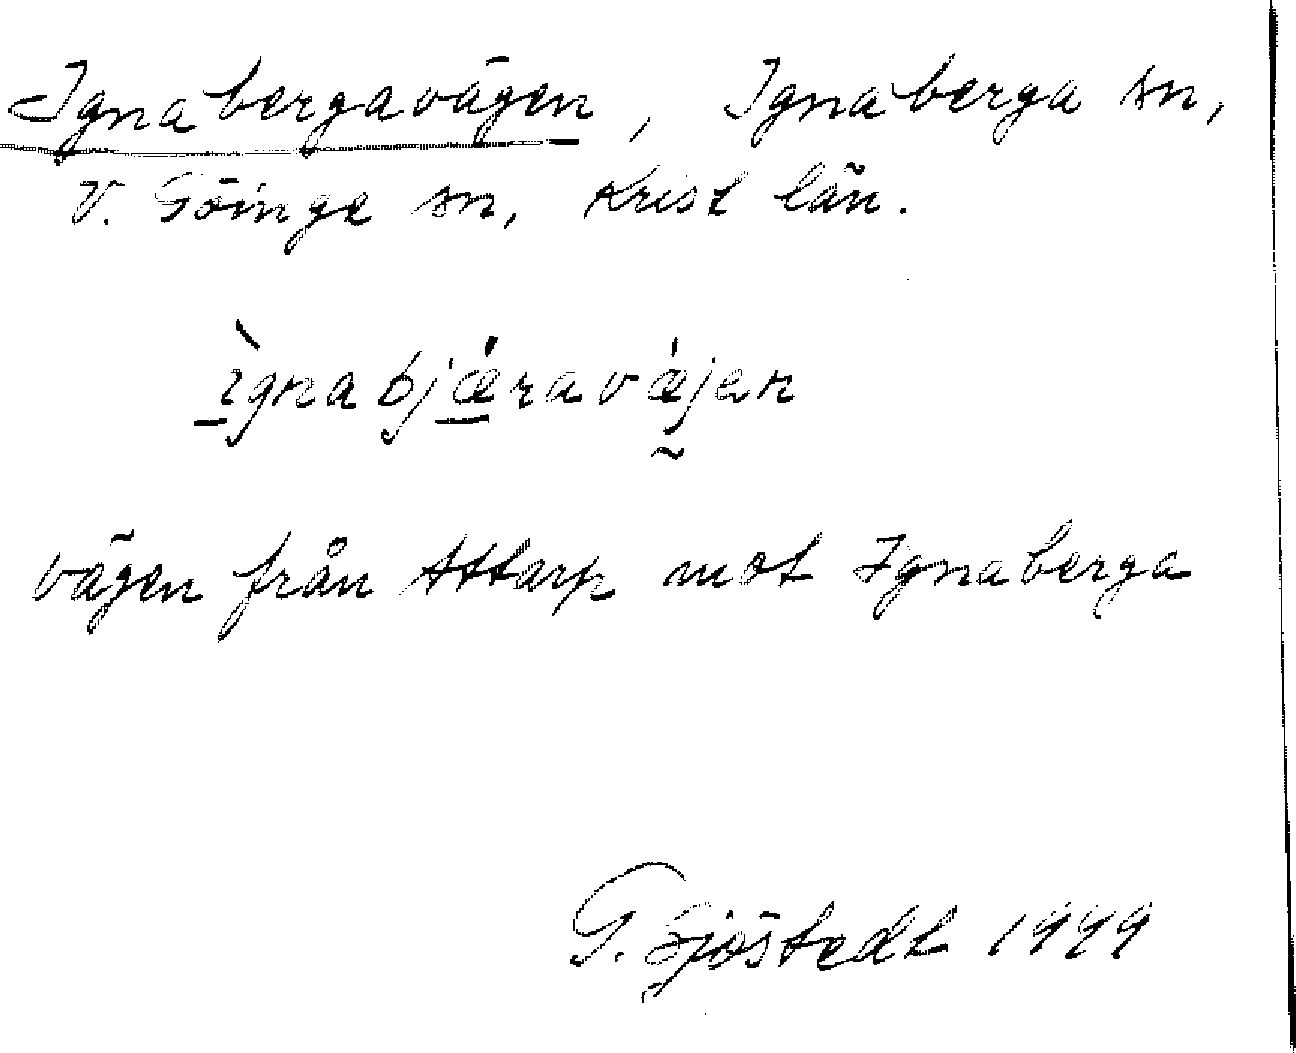 Ignabergavägen, Ignaberga sn,
V. Göinge sn, Krist län.
ìgnabjǽravǽjen
vägen från Attarp mot Ignaberga
G. Sjöstedt 1999